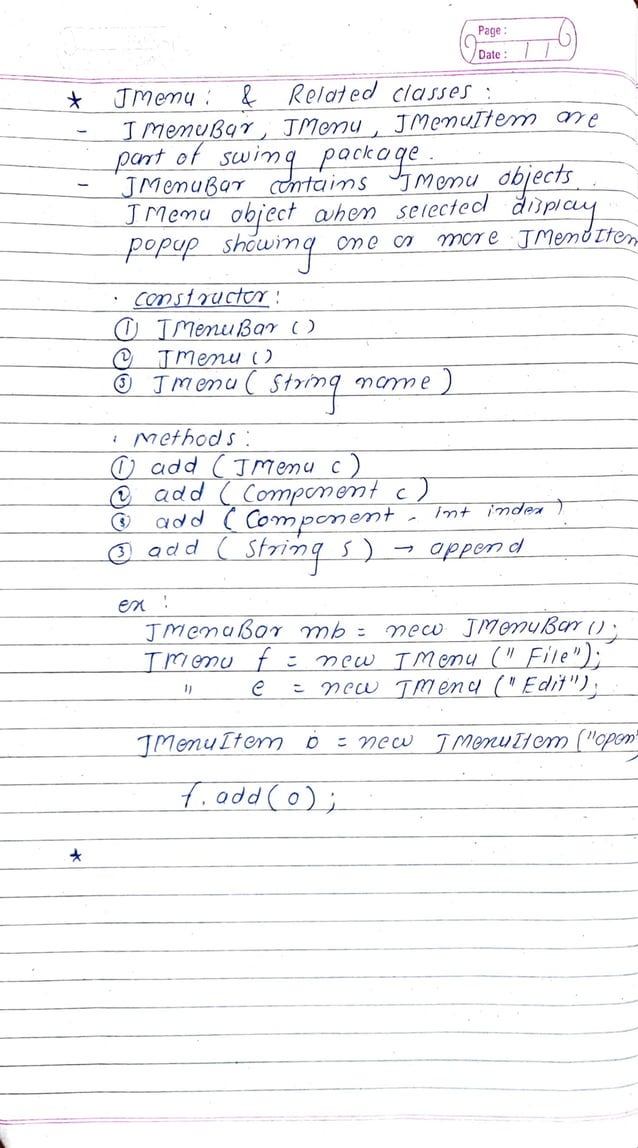 Page :
Date : / /
* JMenu : & Related classes :
- JMenuBar, JMenu, JMenuItem are
part of swing package.
- JMenuBar contains JMenu objects.
JMenu object when selected display
popup showing one or more JMenuItem
· constructor :
① JMenuBar ()
② JMenu ()
③ JMenu ( String name )
· Methods :
① add ( JMenu c )
② add ( Component c )
③ add ( Component - int index )
③ add ( String s ) → append
ex :
JMenuBar mb = new JMenuBar ();
JMenu f = new JMenu (" File");
" e = new JMenu ("Edit");
JMenuItem o = new JMenuItem ("open"
f. add ( o ) ;
*